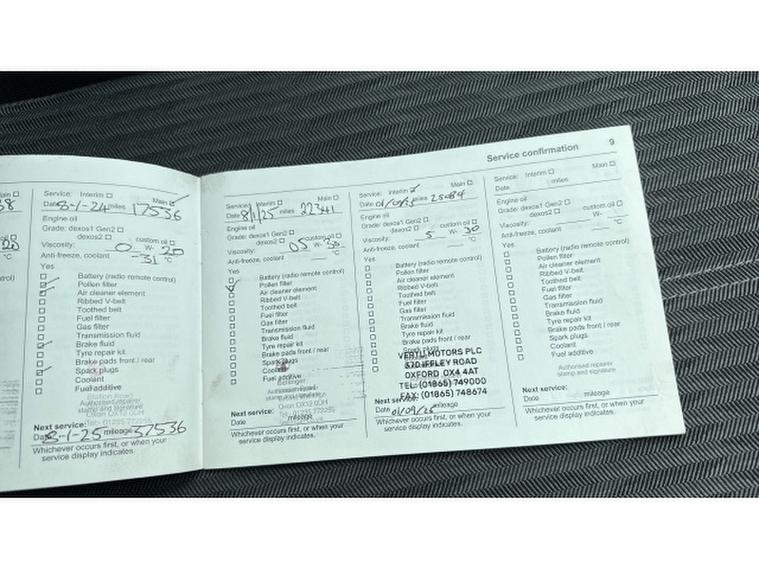 Service confirmation 9
Main
Service: Interim Main
Date 8-1-24 miles 17536
Engine oil
Grade: dexos1 Gen2 custom oil
dexos2
Viscosity: 0 W- 20
Anti-freeze, coolant -31 °C
Yes
Battery (radio remote control)
Pollen filter
Air cleaner element
Ribbed V-belt
Toothed belt
Fuel filter
Gas filter
Transmission fluid
Brake fluid
Tyre repair kit
Brake pads front / rear
Spark plugs
Coolant
Fuel additive
Authorised repairer
stamp and signature
Next service:
Date 8-1-25 mileage 37536
Whichever occurs first, or when your
service display indicates.
Service: Interim Main
Date 8/1/25 miles 22341
Engine oil
Grade: dexos1 Gen2
dexos2 custom oil
Viscosity: 05 W- 30
Anti-freeze, coolant °C
Yes
Battery (radio remote control)
Pollen filter
Air cleaner element
Ribbed V-belt
Toothed belt
Fuel filter
Gas filter
Transmission fluid
Brake fluid
Tyre repair kit
Brake pads front / rear
Spark plugs
Coolant
Fuel additive
Next service:
Date mileage
Whichever occurs first, or when your
service display indicates.
Service: Interim Main
Date miles 25084
Engine oil
Grade: dexos1 Gen2
dexos2 custom oil
Viscosity: 5 W- 30
Anti-freeze, coolant °C
Yes
Battery (radio remote control)
Pollen filter
Air cleaner element
Ribbed V-belt
Toothed belt
Fuel filter
Gas filter
Transmission fluid
Brake fluid
Tyre repair kit
Brake pads front / rear
VERTU MOTORS PLC
370 IFFLEY ROAD
OXFORD OX4 4AT
TEL: (01865) 749000
FAX: (01865) 748674
Next service:
Date mileage
Whichever occurs first, or when your
service display indicates.
Service: Interim Main
Date miles
Engine oil
Grade: dexos1 Gen2
dexos2 custom oil
Viscosity: W-
Anti-freeze, coolant °C
Yes
Battery (radio remote control)
Pollen filter
Air cleaner element
Ribbed V-belt
Toothed belt
Fuel filter
Gas filter
Transmission fluid
Brake fluid
Tyre repair kit
Brake pads front / rear
Spark plugs
Coolant
Fuel additive
Authorised repairer
stamp and signature
Next service:
Date mileage
Whichever occurs first, or when your
service display indicates.